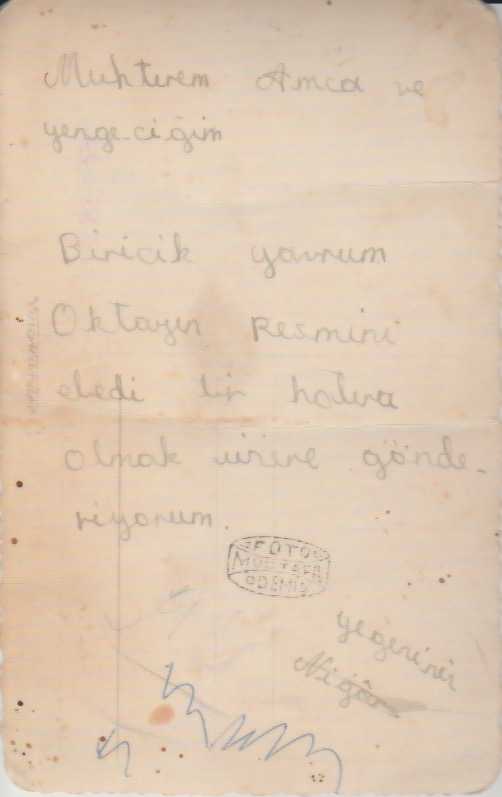 Muhterem Amca ve
yenge-ciğim
Biricik yavrum
Oktayın Resmini
ebedi bir hatıra
olmak üzere gönde-
riyorum.
FOTO
MUSTAFA
ÖDEMİŞ
yegeniniz
Nigâr